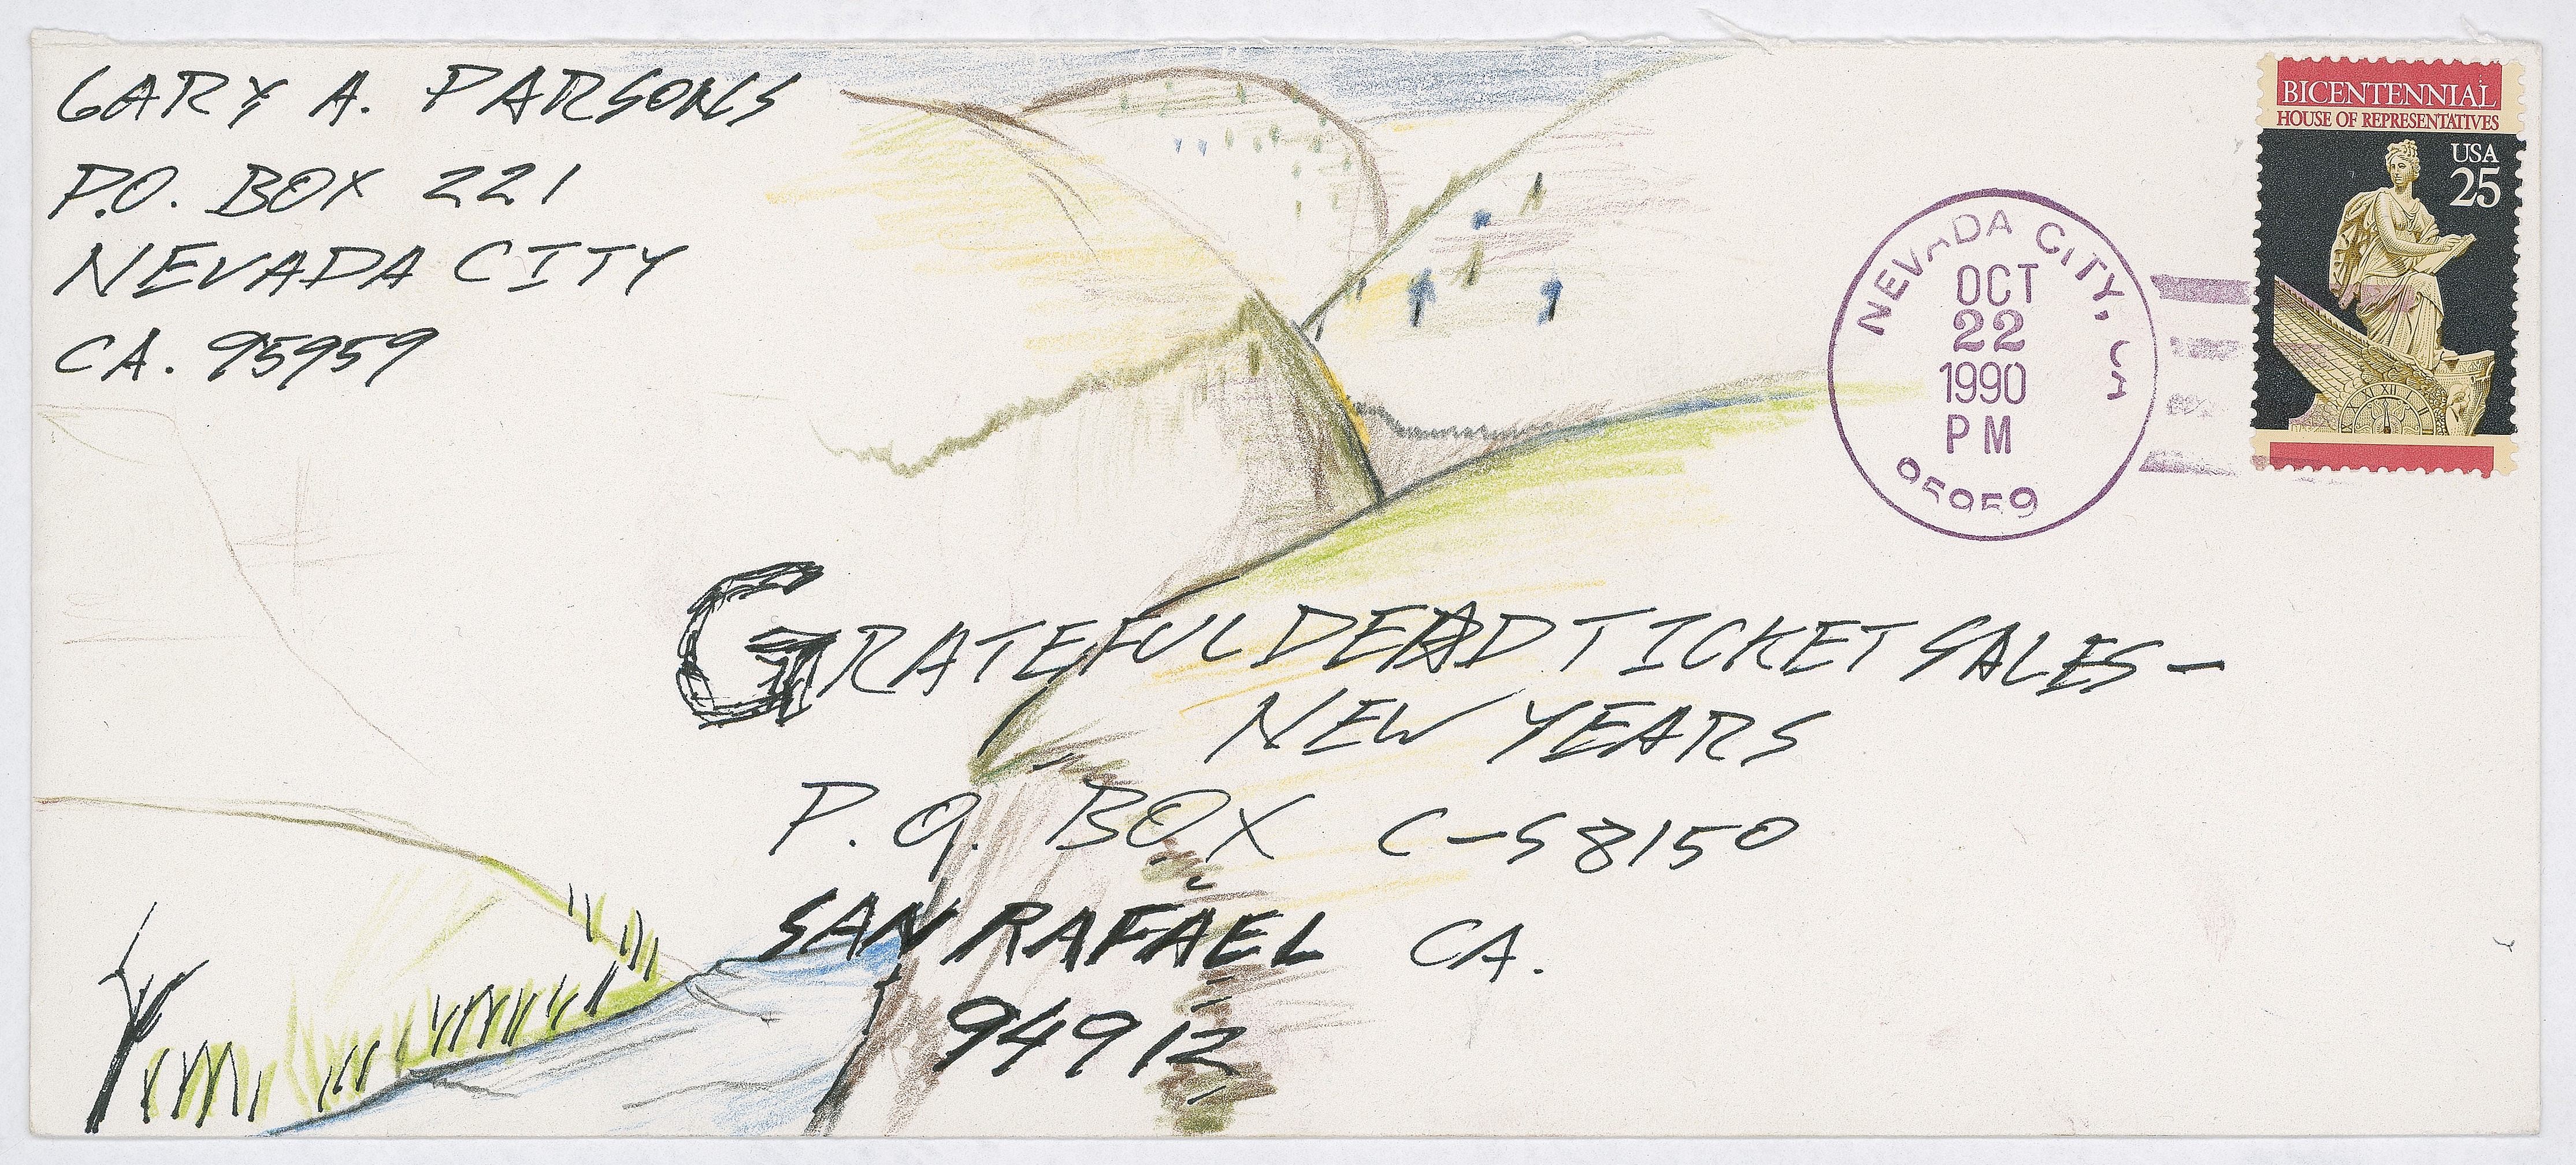 GARY A. PARSONS
P.O. BOX 221
NEVADA CITY
CA. 95959
BICENTENNIAL
HOUSE OF REPRESENTATIVES
USA
25
XII
NEVADA CITY, CA
OCT
22
1990
PM
95959
GRATEFUL DEAD TICKET SALES-
NEW YEARS
P.O. BOX C-S8150
SAN RAFAEL CA.
94912